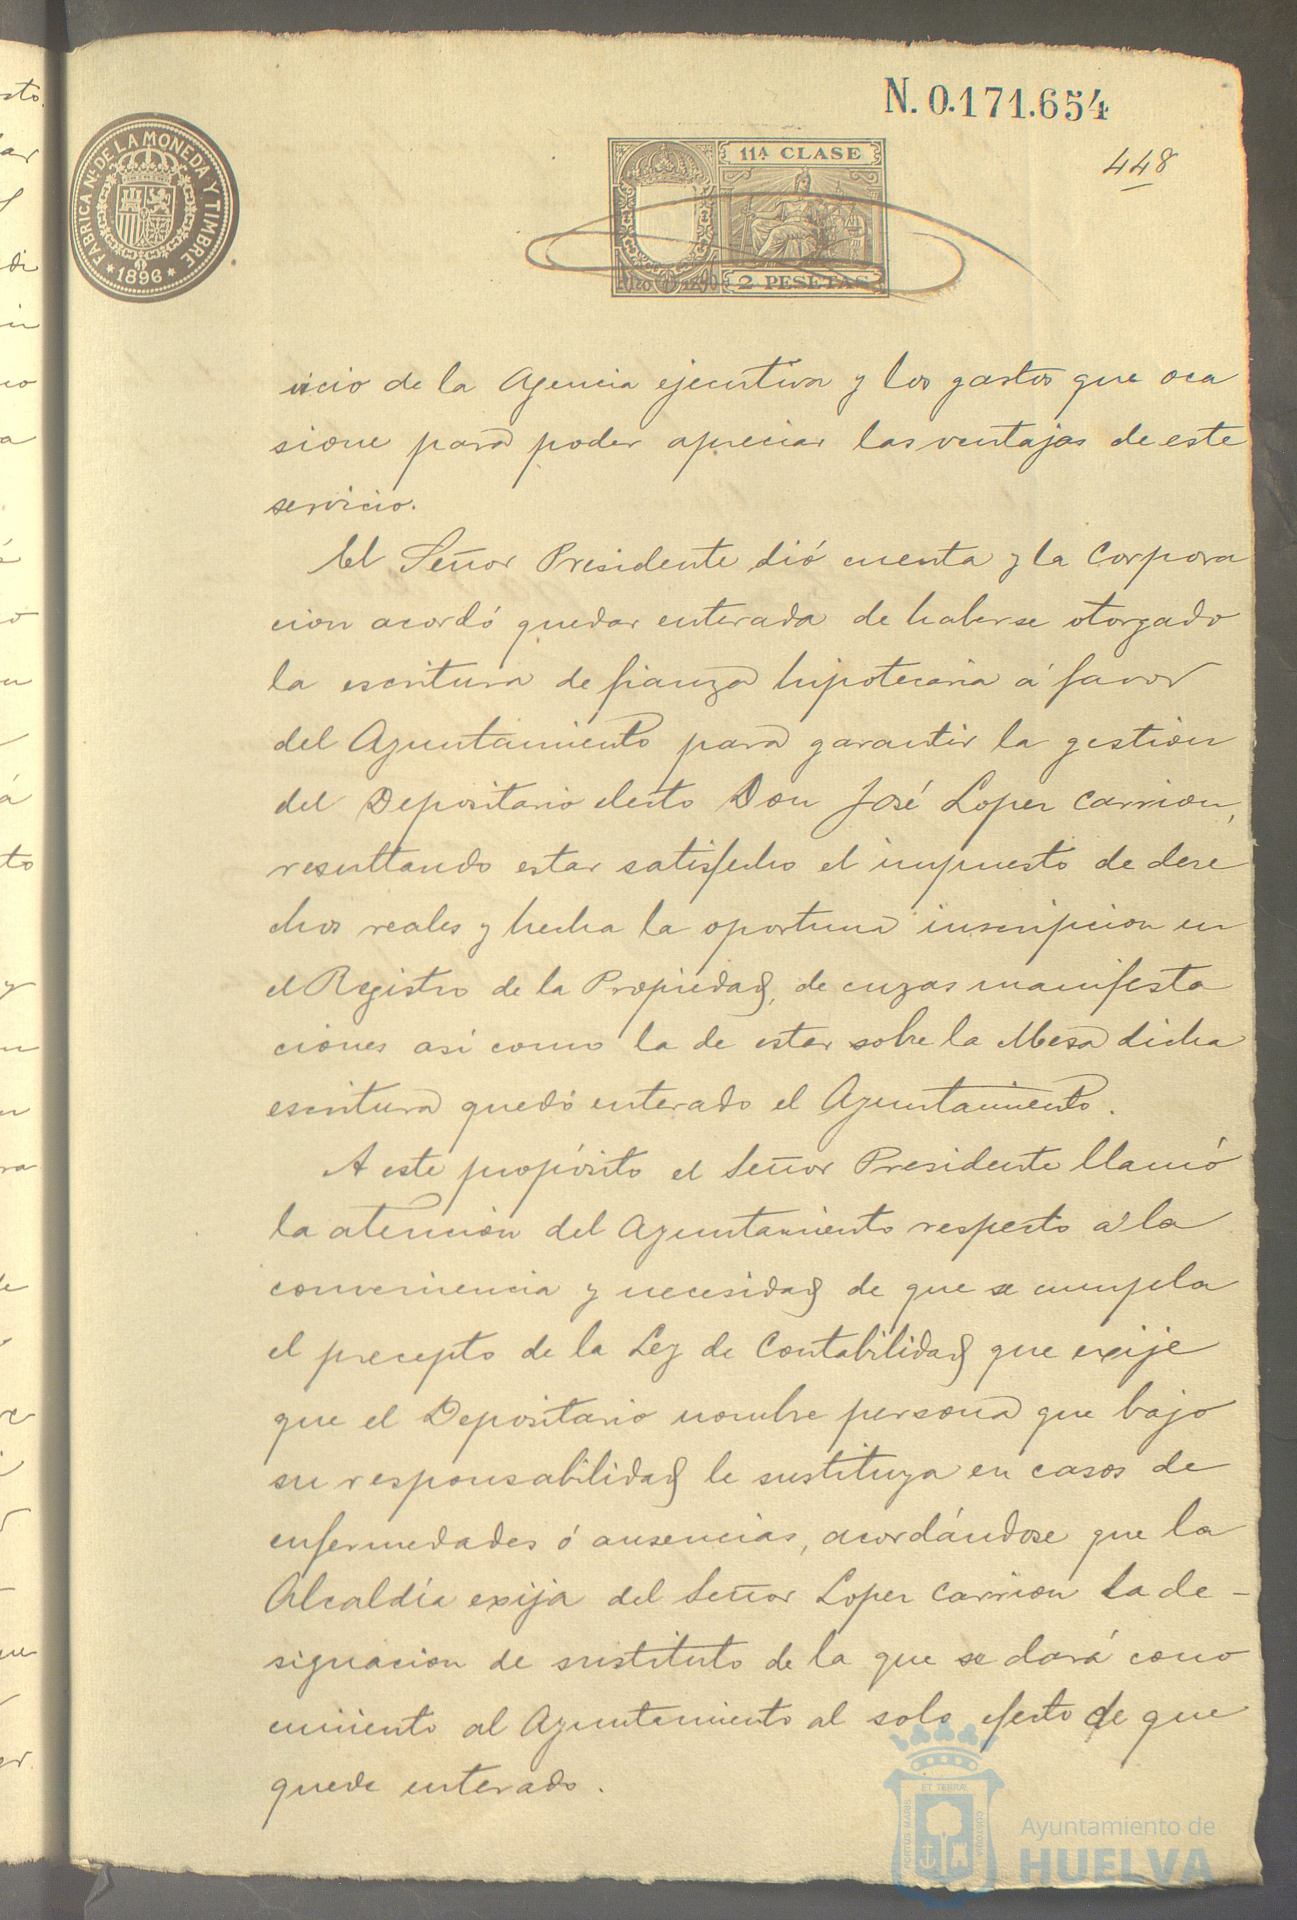 N. 0.171.654
448
FABRICA Nl. DE LA MONEDA Y TIMBRE
* 1896 *
11ª CLASE
2 PESETAS
vicio de la Agencia ejecutiva y los gastos que oca
sione para poder apreciar las ventajas de este
servicio.
El Señor Presidente dió cuenta y la Corpora
cion acordó quedar enterada de haberse otorgado
la escritura de fianza hipotecaria á favor
del Ayuntamiento para garantir la gestion
del Depositario electo Don José Lopez Carrion,
resultando estar satisfecho el impuesto de dere
chos reales y hecha la oportuna inscripcion en
el Registro de la Propiedad, de cuyas manifesta
ciones asi como la de estar sobre la Mesa dicha
escritura quedó enterado el Ayuntamiento.
A este propósito el Señor Presidente llamó
la atención del Ayuntamiento respecto a la
conveniencia y necesidad de que se cumpla
el precepto de la Ley de Contabilidad que exije
que el Depositario nombre persona que bajo
su responsabilidad le sustituya en casos de
enfermedades ó ausencias, acordándose que la
Alcaldía exija del Señor Lopez Carrion la de-
signacion de sustituto de la que se dará cono
cimiento al Ayuntamiento al solo efecto de que
quede enterado.
PORTUS MARIS ET TERRÆ CUSTODIA
Ayuntamiento de
HUELVA